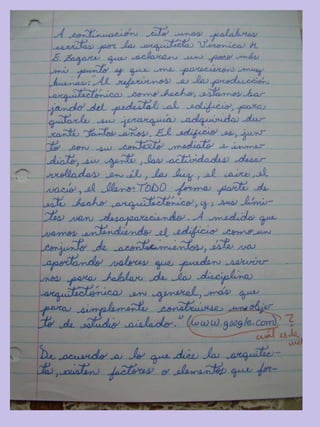 A continuación cito unas palabras
escritas por la arquitecta Veronica K
E. Zagare que aclaran un poco más
mi punto y que me parecieron muy
buenas: Al referirnos a la producción
arquitectónica como hecho, estamos ba-
jando del pedestal al edificio, para
quitarle su jerarquía adquirida du-
rante tantos años. El edificio es, jun-
to con su contexto mediato e inme-
diato, su gente, las actividades desa-
rrolladas en él, la luz, el aire, el
vacío, el lleno. TODO forma parte de
este hecho arquitectónico, y sus lími-
tes van desapareciendo. A medida que
vamos entendiendo el edificio como un
conjunto de acontecimientos, éste va
aportando valores que pueden servir-
nos para hablar de la disciplina
arquitectónica en general, más que
para simplemente construirse un obje-
to de estudio aislado." (www.google.com) ?
cuál es la
De acuerdo a lo que dice la arquitec-
ta, existen factores o elementos que for-